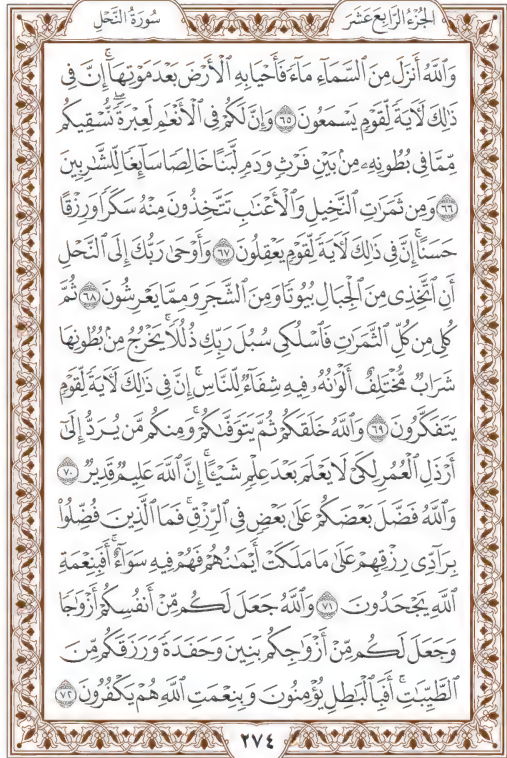 الجُزْءُ الرَّابِعَ عَشَرَ
سُورَةُ النَّحْلِ
وَٱللَّهُ أَنزَلَ مِنَ ٱلسَّمَآءِ مَآءً فَأَحْيَا بِهِ ٱلْأَرْضَ بَعْدَ مَوْتِهَآ ۚ إِنَّ فِى
ذَٰلِكَ لَءَايَةً لِّقَوْمٍ يَسْمَعُونَ ۝٦٥ وَإِنَّ لَكُمْ فِى ٱلْأَنْعَٰمِ لَعِبْرَةً ۖ نُّسْقِيكُم
مِّمَّا فِى بُطُونِهِۦ مِنۢ بَيْنِ فَرْثٍ وَدَمٍ لَّبَنًا خَالِصًا سَآئِغًا لِّلشَّٰرِبِينَ
۝٦٦ وَمِن ثَمَرَٰتِ ٱلنَّخِيلِ وَٱلْأَعْنَٰبِ تَتَّخِذُونَ مِنْهُ سَكَرًا وَرِزْقًا
حَسَنًا ۗ إِنَّ فِى ذَٰلِكَ لَءَايَةً لِّقَوْمٍ يَعْقِلُونَ ۝٦٧ وَأَوْحَىٰ رَبُّكَ إِلَى ٱلنَّحْلِ
أَنِ ٱتَّخِذِى مِنَ ٱلْجِبَالِ بُيُوتًا وَمِنَ ٱلشَّجَرِ وَمِمَّا يَعْرِشُونَ ۝٦٨ ثُمَّ
كُلِى مِن كُلِّ ٱلثَّمَرَٰتِ فَٱسْلُكِى سُبُلَ رَبِّكِ ذُلُلًا ۚ يَخْرُجُ مِنۢ بُطُونِهَا
شَرَابٌ مُّخْتَلِفٌ أَلْوَٰنُهُۥ فِيهِ شِفَآءٌ لِّلنَّاسِ ۗ إِنَّ فِى ذَٰلِكَ لَءَايَةً لِّقَوْمٍ
يَتَفَكَّرُونَ ۝٦٩ وَٱللَّهُ خَلَقَكُمْ ثُمَّ يَتَوَفَّىٰكُمْ ۚ وَمِنكُم مَّن يُرَدُّ إِلَىٰٓ
أَرْذَلِ ٱلْعُمُرِ لِكَىْ لَا يَعْلَمَ بَعْدَ عِلْمٍ شَيْـًٔا ۚ إِنَّ ٱللَّهَ عَلِيمٌ قَدِيرٌ ۝٧٠
وَٱللَّهُ فَضَّلَ بَعْضَكُمْ عَلَىٰ بَعْضٍ فِى ٱلرِّزْقِ ۚ فَمَا ٱلَّذِينَ فُضِّلُوا۟
بِرَآدِّى رِزْقِهِمْ عَلَىٰ مَا مَلَكَتْ أَيْمَٰنُهُمْ فَهُمْ فِيهِ سَوَآءٌ ۚ أَفَبِنِعْمَةِ
ٱللَّهِ يَجْحَدُونَ ۝٧١ وَٱللَّهُ جَعَلَ لَكُم مِّنْ أَنفُسِكُمْ أَزْوَٰجًا
وَجَعَلَ لَكُم مِّنْ أَزْوَٰجِكُم بَنِينَ وَحَفَدَةً وَرَزَقَكُم مِّنَ
ٱلطَّيِّبَٰتِ ۚ أَفَبِٱلْبَٰطِلِ يُؤْمِنُونَ وَبِنِعْمَتِ ٱللَّهِ هُمْ يَكْفُرُونَ ۝٧٢
٢٧٤